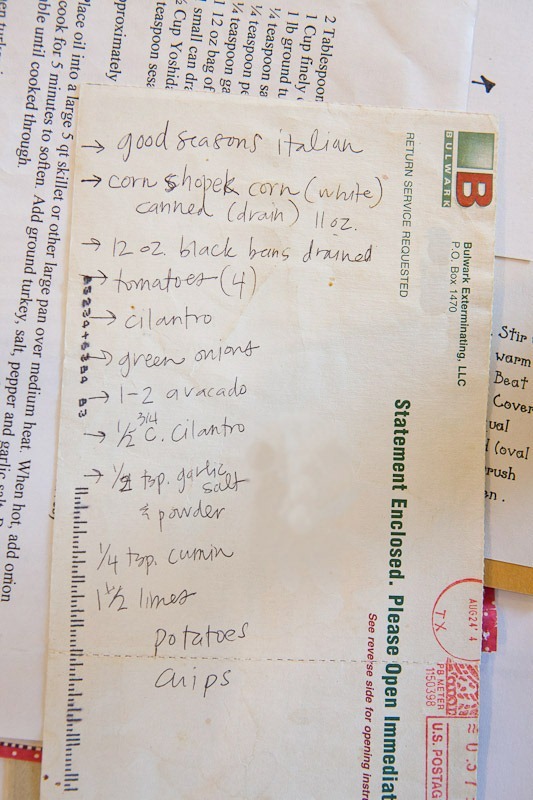 → good seasons italian
→ corn shopek corn (white)
canned (drain) 11 oz.
→ 12 oz. black bans drained
→ tomatoes (4)
→ cilantro
→ green onions
→ 1-2 avacado
→ 1/2 3/4 c. cilantro
→ 1/2 tsp. garlic
salt
& powder
1/4 tsp. cumin
1 1/2 limes
potatoes
chips
BULWARK
B
RETURN SERVICE REQUESTED
Bulwark Exterminating, LLC
P.O. Box 1470
Statement Enclosed. Please Open Immediat
See reverse side for opening instru
AUG 24
TX
PB METER
1150398
U.S. POSTAG
2 Tablespoon
1 Cup finely
1 lb ground tu
¼ teaspoon sa
¼ teaspoon pe
¼ teaspoon ga
1 12 oz bag of
small can dra
½ Cup Yoshid
teaspoon sesa
pproximately
lace oil into a large 5 qt skillet or other large pan over medium heat. When hot, add onion
cook for 5 minutes to soften. Add ground turkey, salt, pepper and garlic salt.
able until cooked through.
Stir
warm
Beat
Cover
ual
(oval
rush
en.